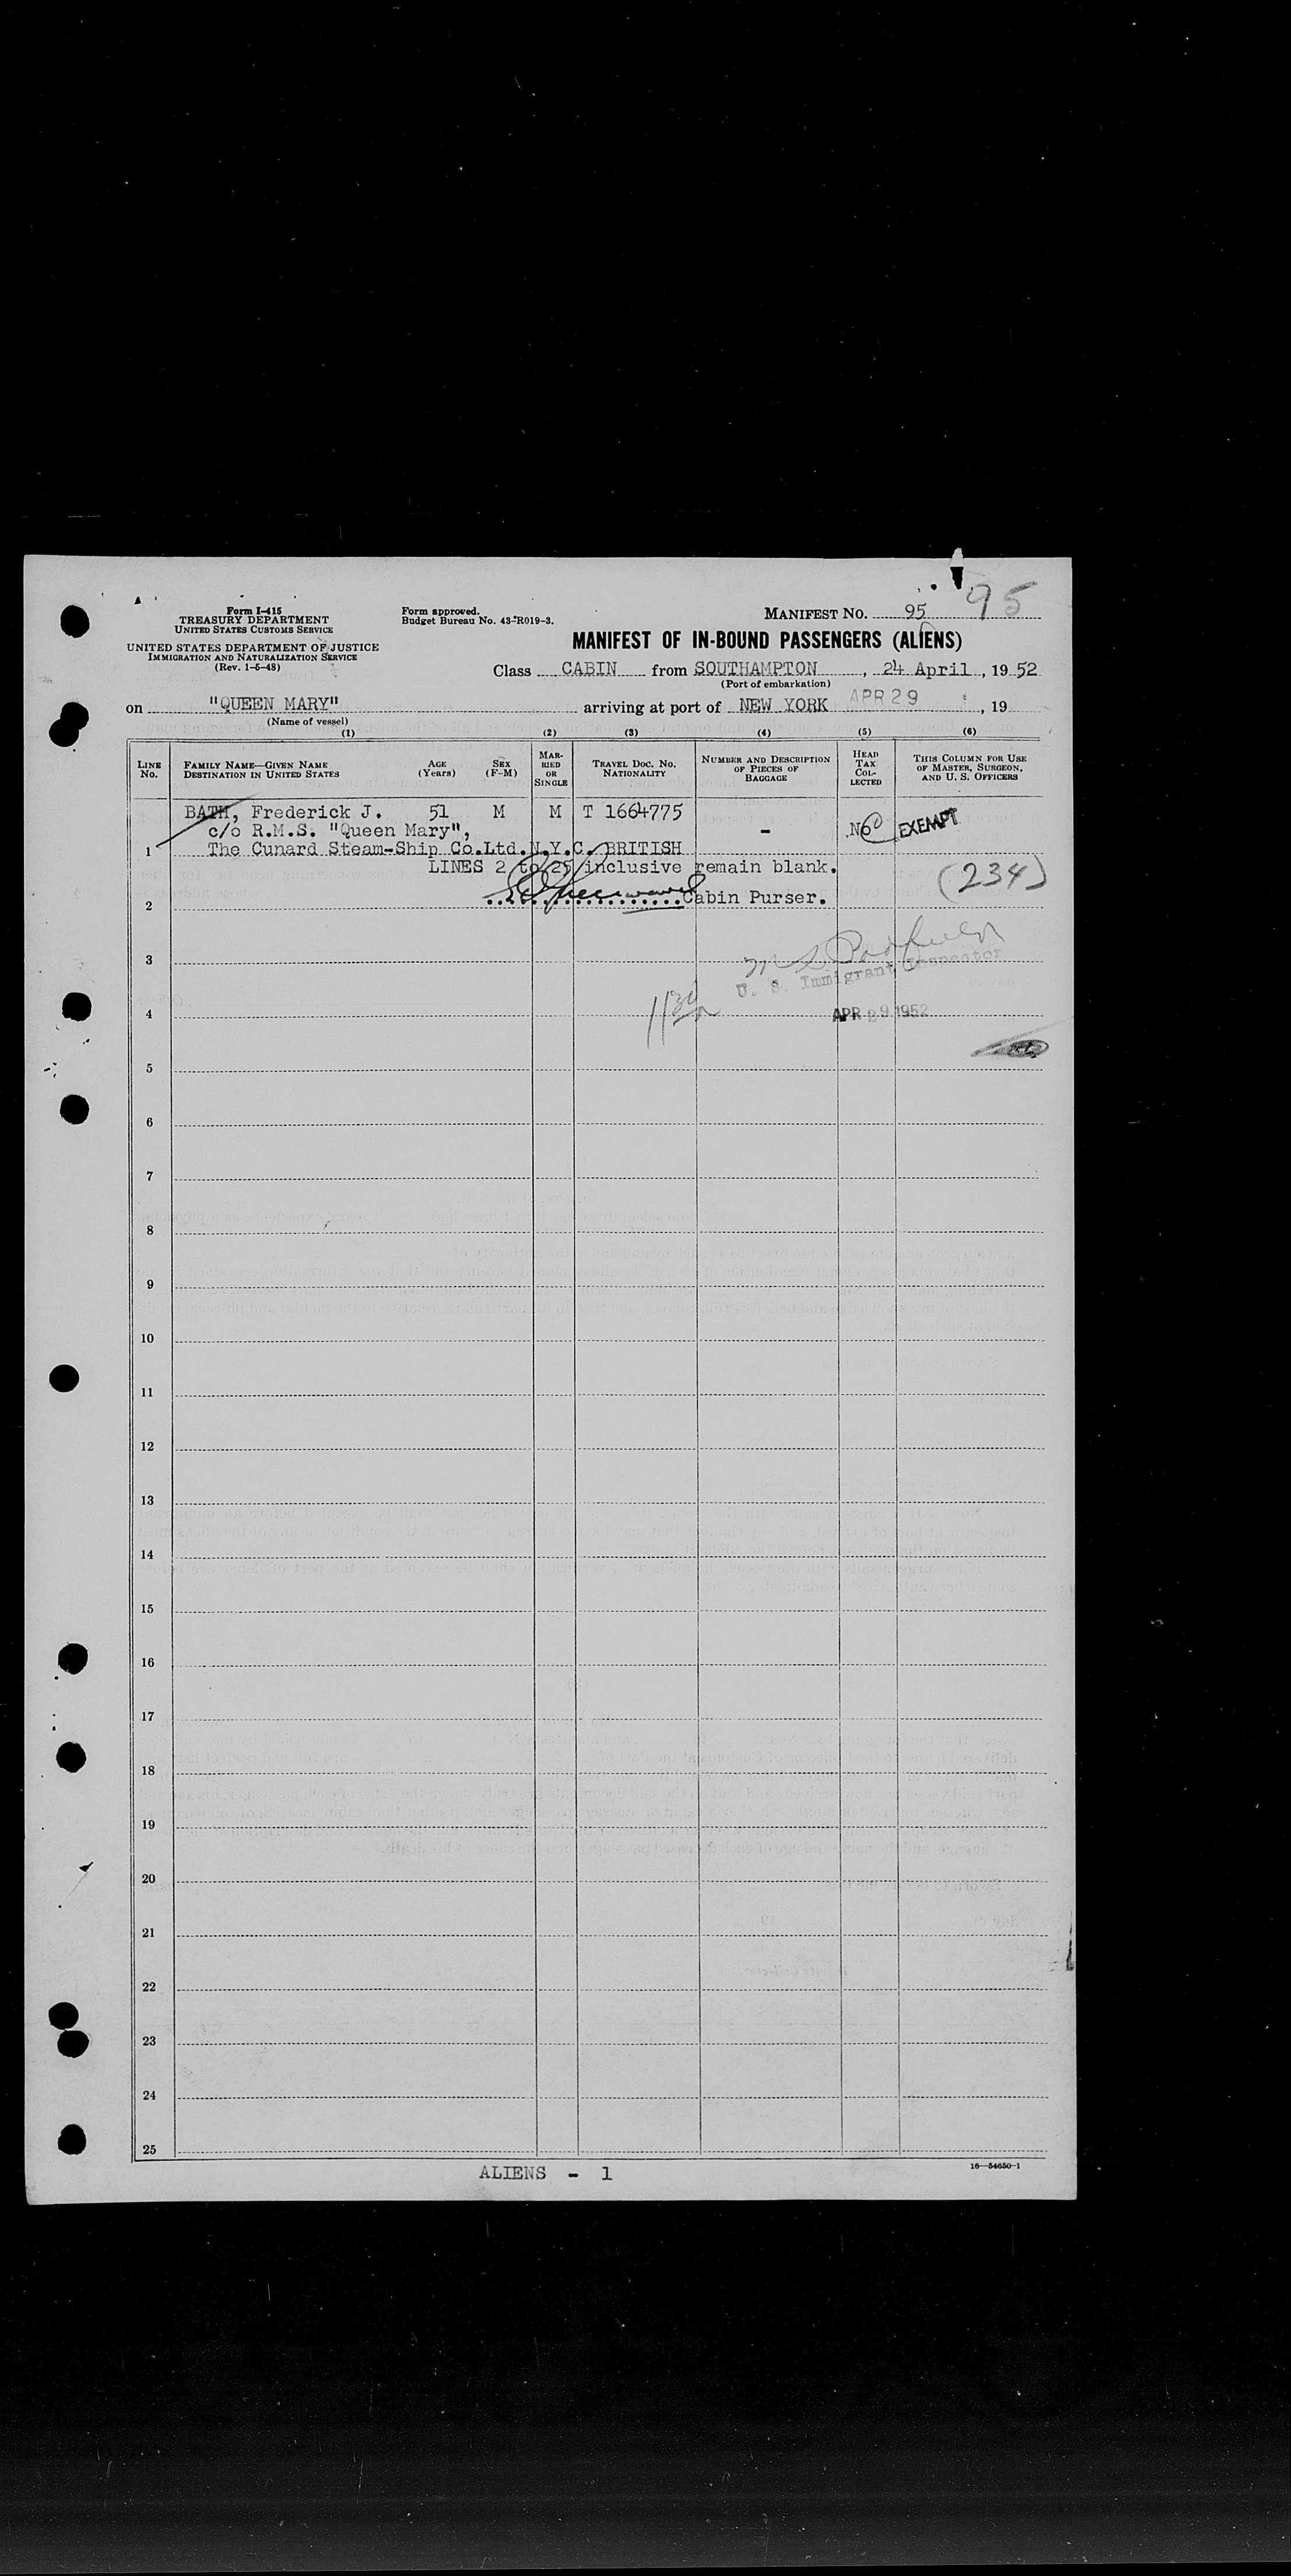 Form I-415
TREASURY DEPARTMENT
UNITED STATES CUSTOMS SERVICE
UNITED STATES DEPARTMENT OF JUSTICE
IMMIGRATION AND NATURALIZATION SERVICE
(Rev. 1-5-48)
Form approved.
Budget Bureau No. 43-R019-3.
MANIFEST NO. 95 95
MANIFEST OF IN-BOUND PASSENGERS (ALIENS)
Class CABIN from SOUTHAMPTON, 24 April, 19 52
(Port of embarkation)
on "QUEEN MARY" arriving at port of NEW YORK APR 29, 19
(Name of vessel)
(1) (2) (3) (4) (5) (6)
LINE No.
FAMILY NAME—GIVEN NAME
DESTINATION IN UNITED STATES
AGE (Years)
SEX (F-M)
MARRIED OR SINGLE
TRAVEL DOC. NO.
NATIONALITY
NUMBER AND DESCRIPTION OF PIECES OF BAGGAGE
HEAD TAX COLLECTED
THIS COLUMN FOR USE OF MASTER, SURGEON, AND U. S. OFFICERS
BATH, Frederick J. 51 M M T 1664775
c/o R.M.S. "Queen Mary", - No EXEMPT
1 The Cunard Steam-Ship Co.Ltd.N.Y.C. BRITISH
LINES 2 to 25 inclusive remain blank.
(234)
2 Cabin Purser.
3
U. S. Immigrant Inspector
4 APR 29 1952
5
6
7
8
9
10
11
12
13
14
15
16
17
18
19
20
21
22
23
24
25
16—54650-1
ALIENS - 1